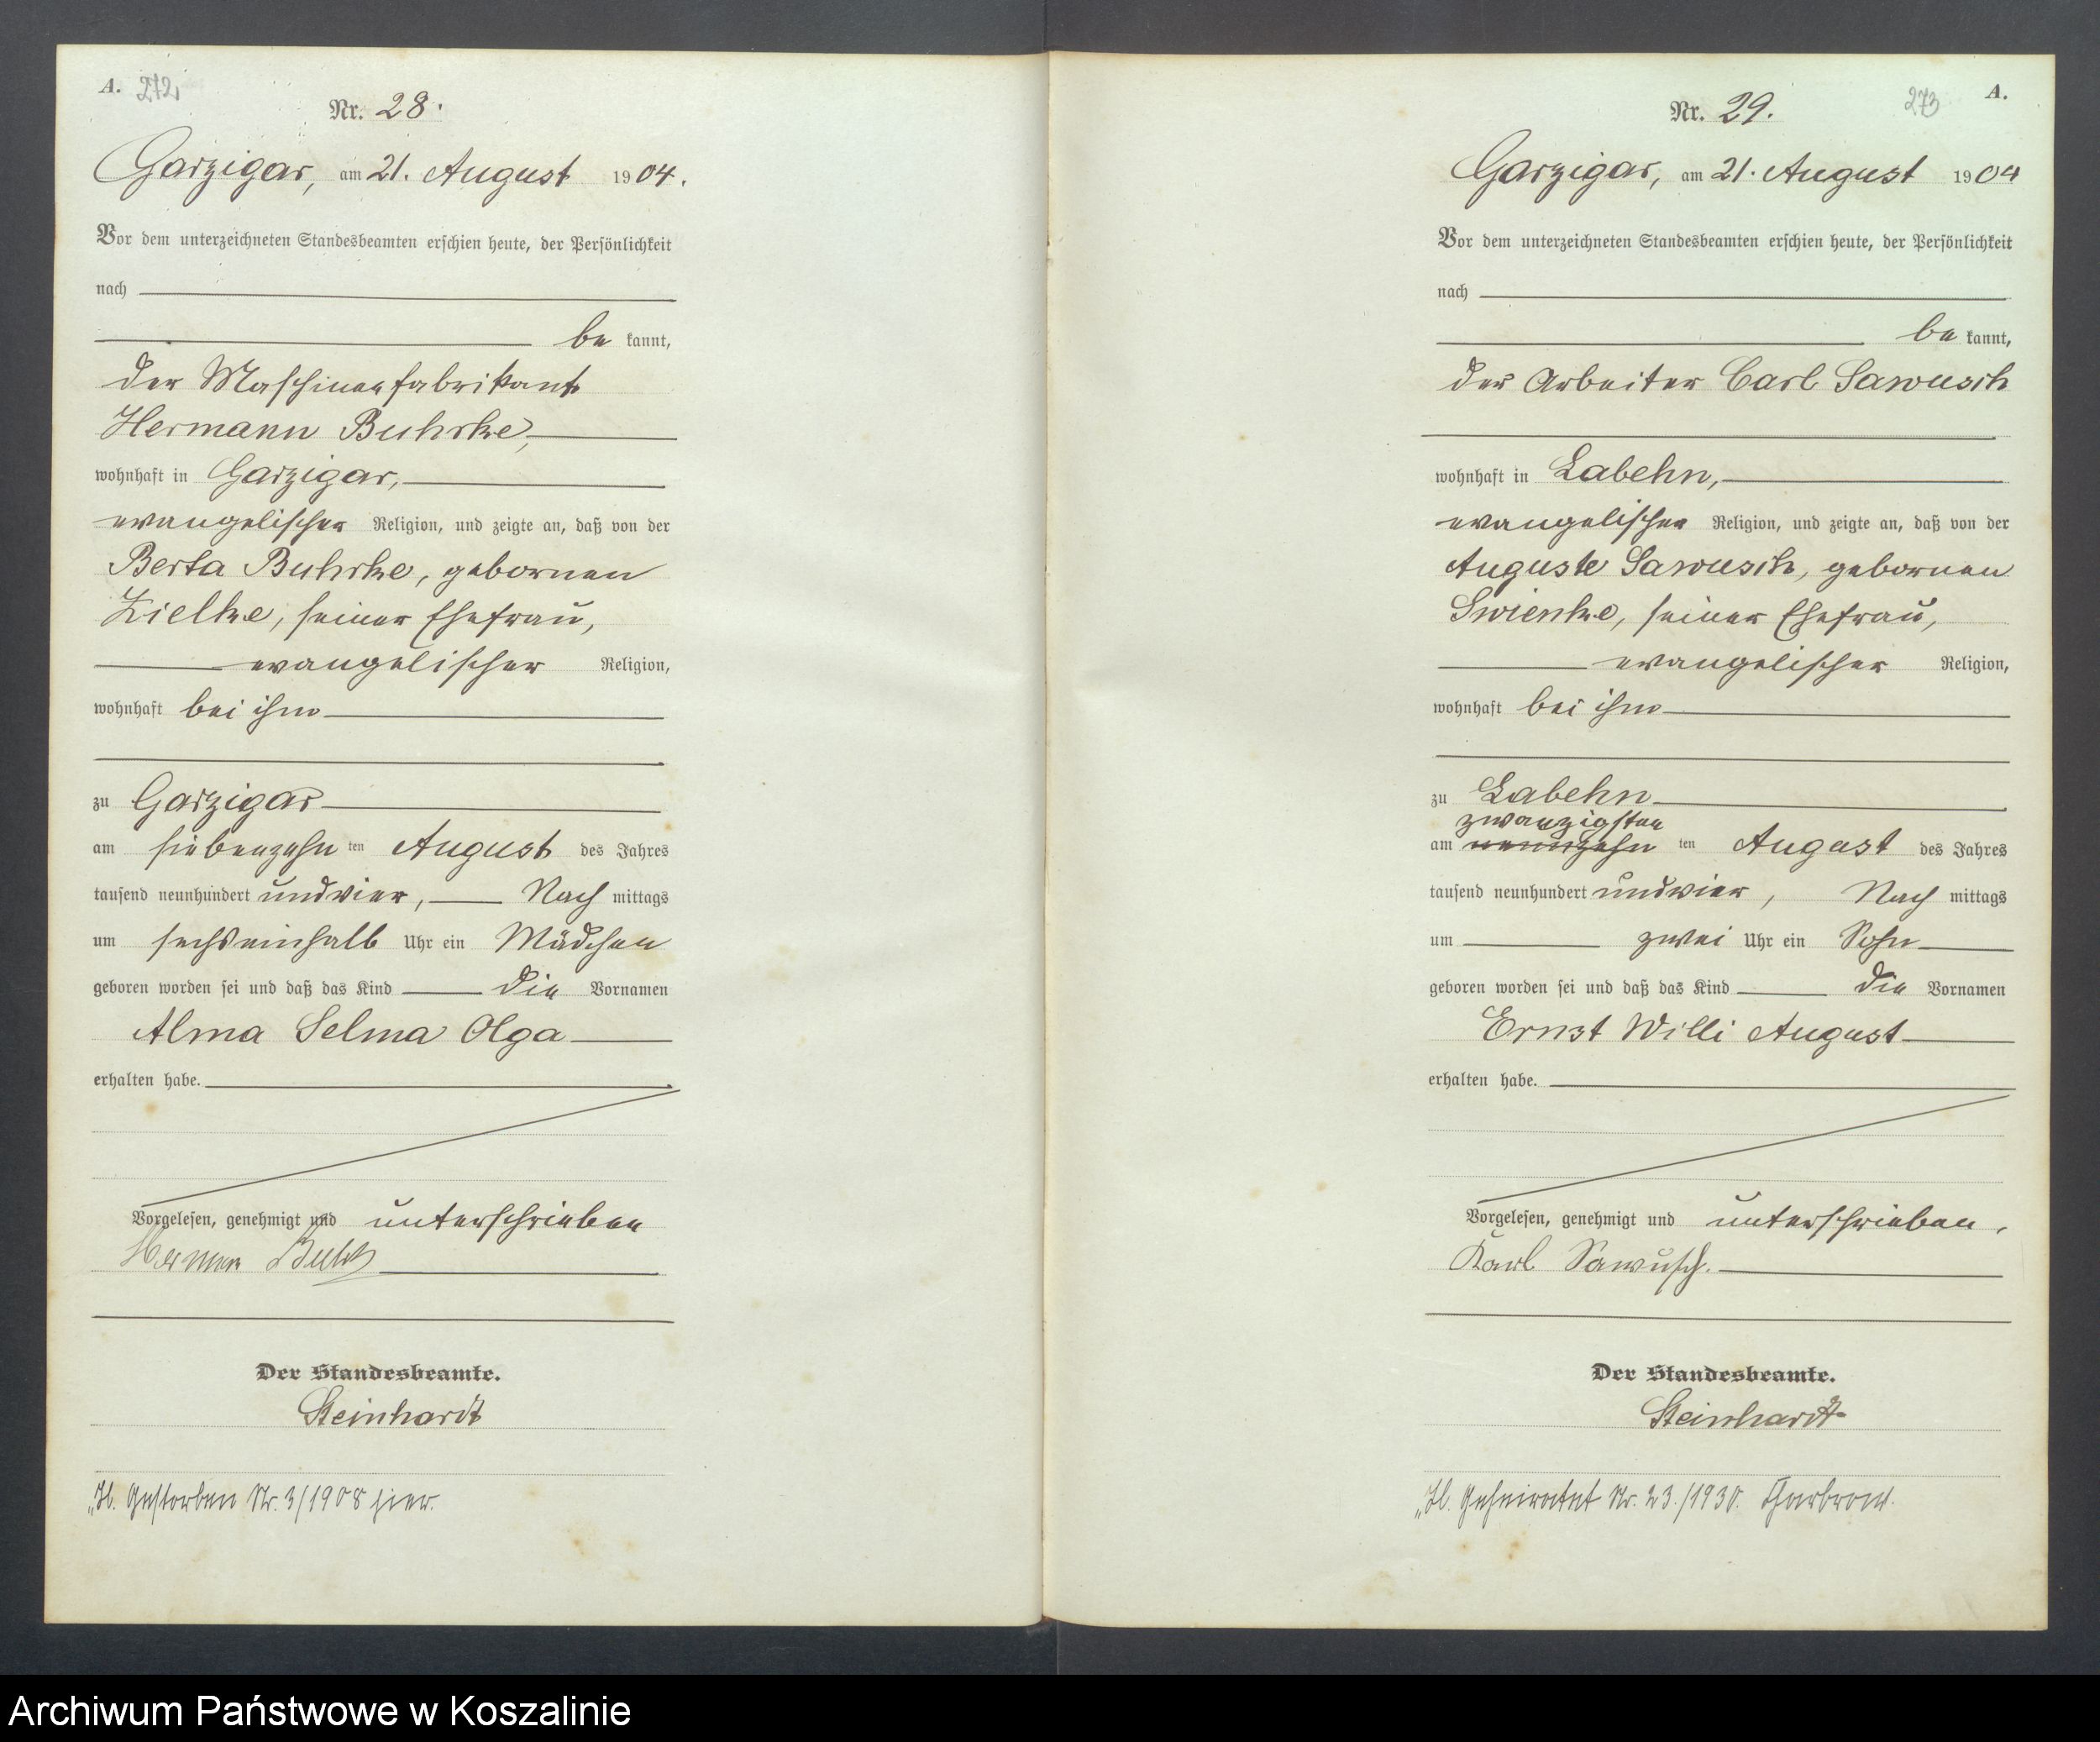 A. 272
Nr. 28.
Garzigar, am 21. August 1904.
Vor dem unterzeichneten Standesbeamten erschien heute, der Persönlichkeit
nach
be kannt,
der Maschinenfabrikant
Hermann Buhrke,
wohnhaft in Garzigar,
evangelischer Religion, und zeigte an, daß von der
Berta Buhrke, gebornen
Zielke, seiner Ehefrau,
evangelischer Religion,
wohnhaft bei ihm
zu Garzigar
am siebenzehn ten August des Jahres
tausend neunhundert undvier, Nach mittags
um sechseinhalb Uhr ein Mädchen
geboren worden sei und daß das Kind die Vornamen
Alma Selma Olga
erhalten habe.
Vorgelesen, genehmigt und unterschrieben
Herman
Der Standesbeamte.
Steinhardt
„H. Gestorben Nr. 3/1908 hier.
273 A.
Nr. 29.
Garzigar, am 21. August 1904
Vor dem unterzeichneten Standesbeamten erschien heute, der Persönlichkeit
nach
be kannt,
der Arbeiter Carl Sawusch
wohnhaft in Labehn,
evangelischer Religion, und zeigte an, daß von der
Auguste Sawusch, gebornen
Swienke, seiner Ehefrau,
evangelischer Religion,
wohnhaft bei ihm
zu Labehn
zwanzigsten
am neunzehn ten August des Jahres
tausend neunhundert undvier, Nach mittags
um zwei Uhr ein Sohn
geboren worden sei und daß das Kind die Vornamen
Ernst Willi August
erhalten habe.
Vorgelesen, genehmigt und unterschrieben,
Karl Sawusch.
Der Standesbeamte.
Steinhardt
„H. Geheiratet Nr. 23./1930. Charbrow.
Archiwum Państwowe w Koszalinie